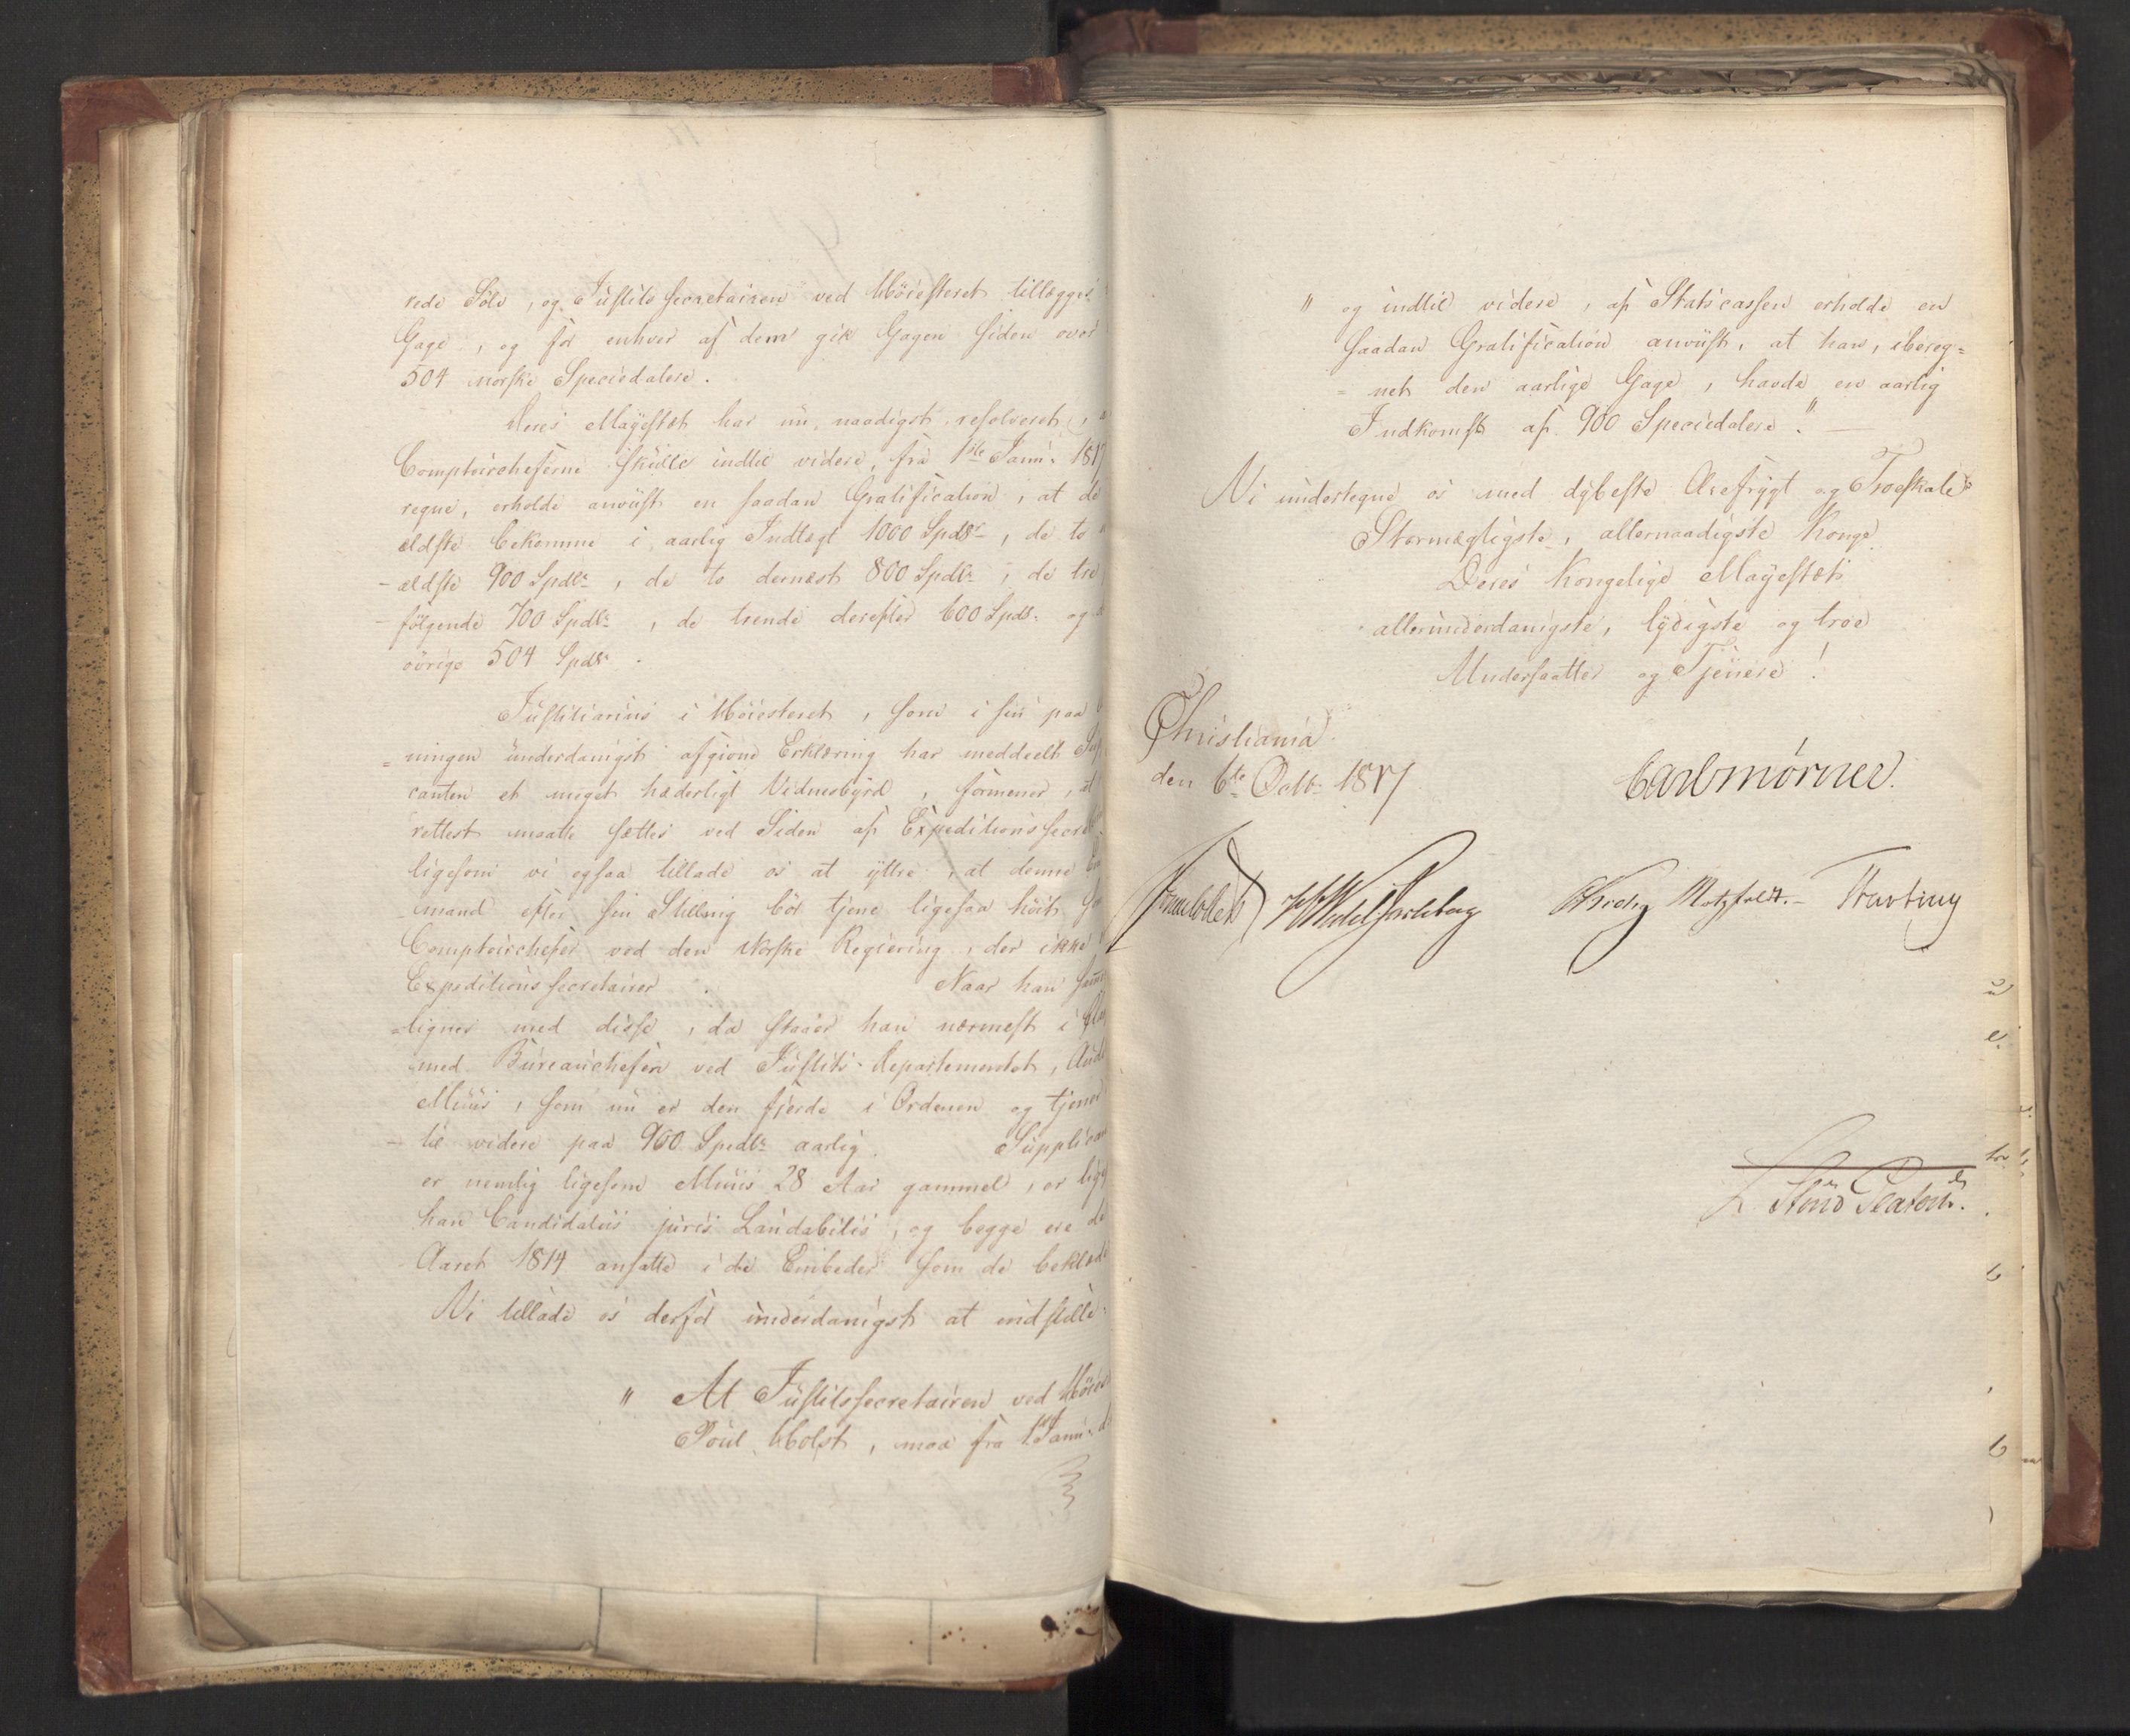 rede Sölv, og Justitssecretairen ved Höiesteret tillægges
Gage, og for enhver af dem gik Gagen siden over
504 norske Speciedalere.
Deres Mayestæt har nu naadigst resolveret,
Comptoircheferne skulle indtil videre, fra 1ste Janu: 1817
regne, erholde anviist en saadan Gratification, at de
ældste bekomme i aarlig Indtægt 1000 Spdlr, de to
- ældste 900 Spdlr, de to dernæst 800 Spdlr, de tre
- følgende 700 Spdlr, de trende derefter 600 Spdlr og
övrige 504 Spdlr.
Justitiarius i Höiesteret, som i sin paa
= ningen underdanigst afgivne Erklæring har meddeelt
canten et meget hæderligt Vidnesbyrd, formener, at
rettest maatte sættes ved Siden af Expeditionssecret
ligesom vi ogsaa tillade os at yttre, at denne
mand efter sin Stilling bör tjene ligesaa höit
Comptoirchefer ved den Norske Regiering, der ikke
Expeditionssecretairer. Naar han
= lignes med disse, da staaer han nærmest i
med Bureauchefen ved Justits-Departementet,
Muus, som nu er den fjerde i Ordenen og tjener
- til videre paa 900 Spedlr aarlig. Supplican
er nemlig ligesom Muus 28 Aar gammel, er
han Candidatus juris Laudabilis, og begge ere
Aaret 1814 ansatte i de Embeder som de beklæde
Vi tillade os derfor underdanigst at indstille:
" At Justitssecretairen ved
Poul Holst, maa fra 1ste Janu:
" og indtil videre, af Statscassen erholde en
saadan Gratification anviist, at han, ibereg=
= net den aarlige Gage, havde en aarlig
Indkomst af 900 Speciedalere."
Vi undertegne os med dybeste Ærefrygt og Troeskab
Stormægtigste, allernaadigste Konge
Deres Kongelige Mayestæts
allerunderdanigste, lydigste og troe
Undersaatter og Tjenere!
Christiania
den 6te Octb: 1817
Carl Mörner.
Motzfeldt.